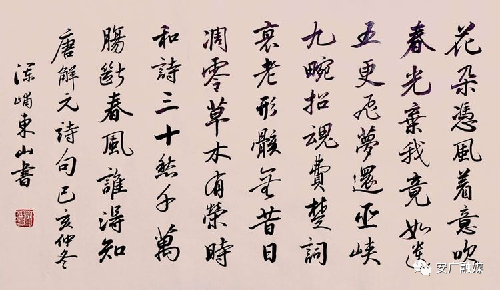 花朵憑風着意吹
春光棄我竟如遺
五更飛夢還巫峽
九畹招魂費楚詞
衰老形骸無昔日
凋零草木有榮時
和詩三十愁千萬
腸斷春風誰得知
唐解元詩句己亥仲冬
東山書
安广融媒